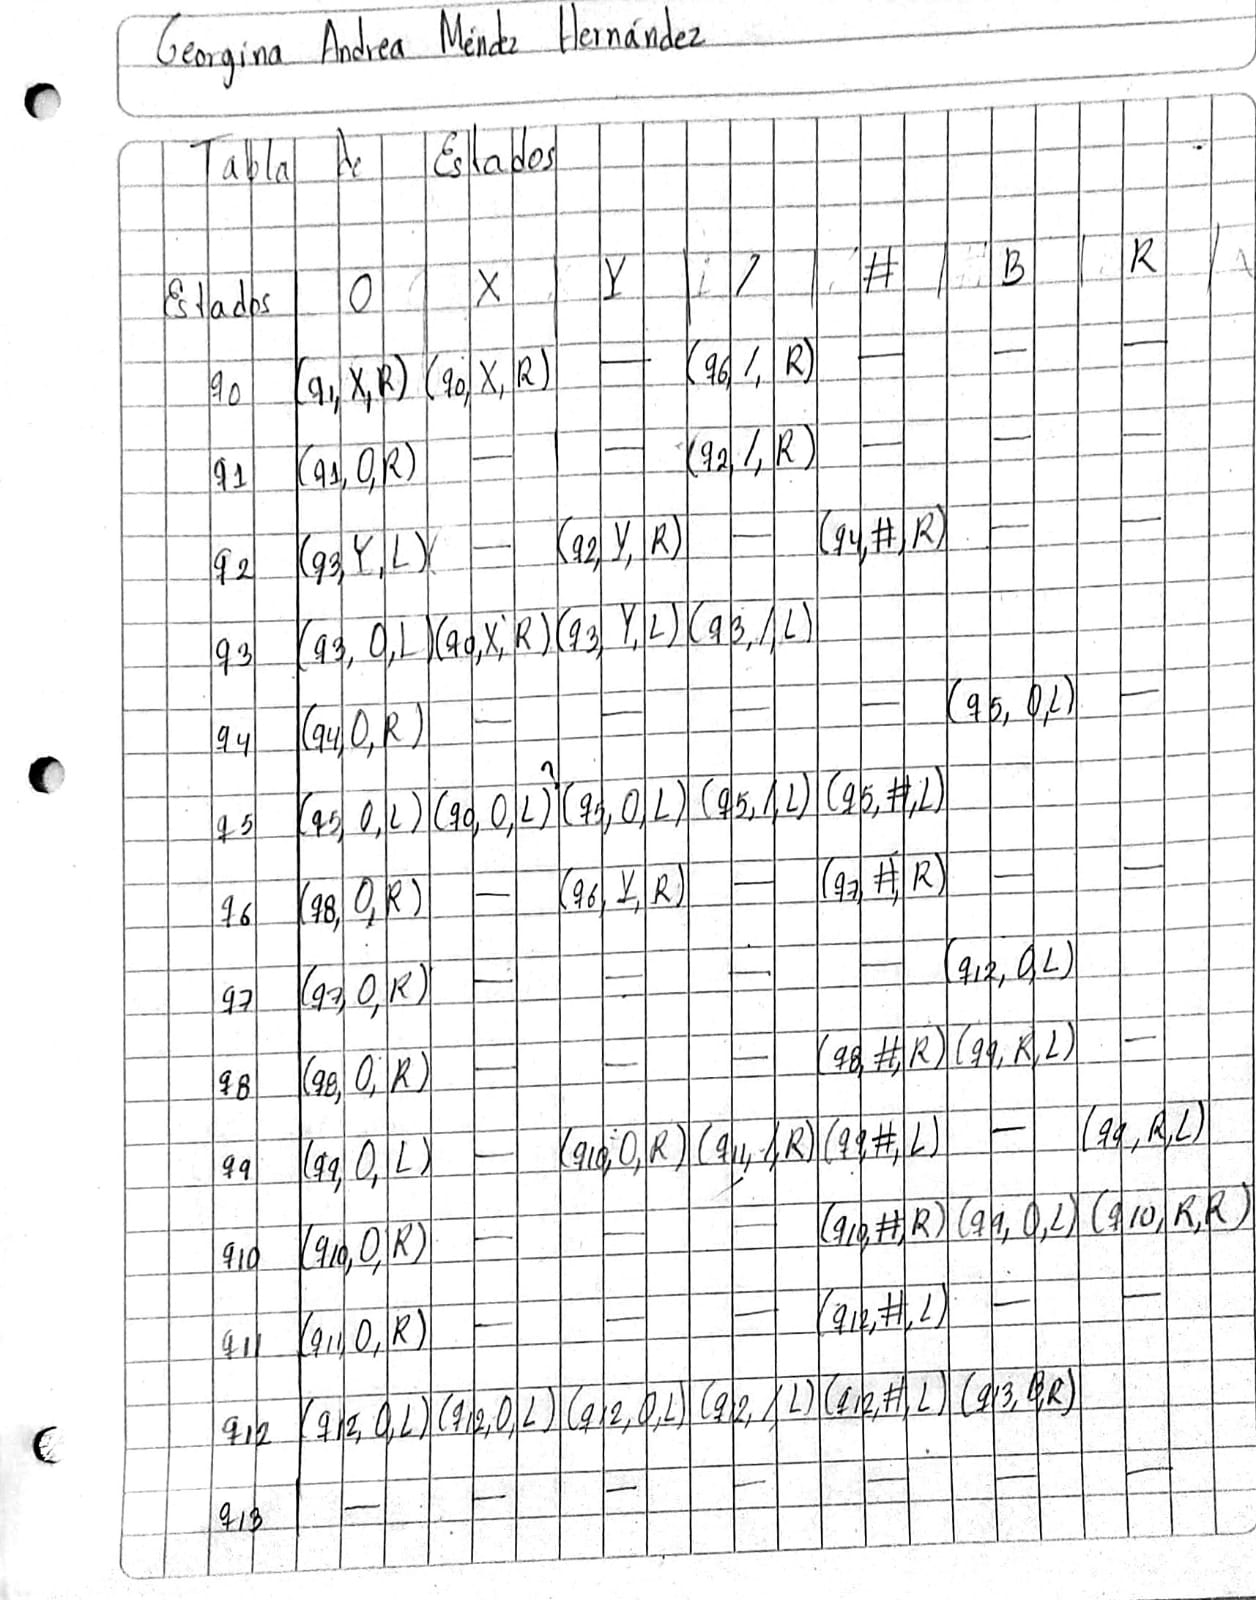 Georgina Andrea Méndez Hernández
Tabla de Estados
Estados | O | X | Y | / | # | B | R |
q0 (q1, X, R) (q0, X, R) — (q6, /, R) — — —
q1 (q1, O, R) — — (q2, /, R) — — —
q2 (q3, Y, L) — (q2, Y, R) — (q4, #, R) — —
q3 (q3, O, L) (q0, X, R) (q3, Y, L) (q3, /, L)
q4 (q4, O, R) — — — — (q5, O, L) —
q5 (q5, O, L) (q0, O, L)? (q5, O, L) (q5, /, L) (q5, #, L)
q6 (q8, O, R) — (q6, Y, R) — (q7, #, R) — —
q7 (q7, O, R) — — — — (q12, O, L)
q8 (q8, O, R) — — — (q8, #, R) (q9, R, L) —
q9 (q9, O, L) — (q10, O, R) (q11, /, R) (q9, #, L) — (q9, R, L)
q10 (q10, O, R) — — — (q10, #, R) (q9, O, L) (q10, R, R)
q11 (q11, O, R) — — — (q12, #, L) — —
q12 (q12, O, L) (q12, O, L) (q12, O, L) (q12, /, L) (q12, #, L) (q13, B, R)
q13 — — — — — — —